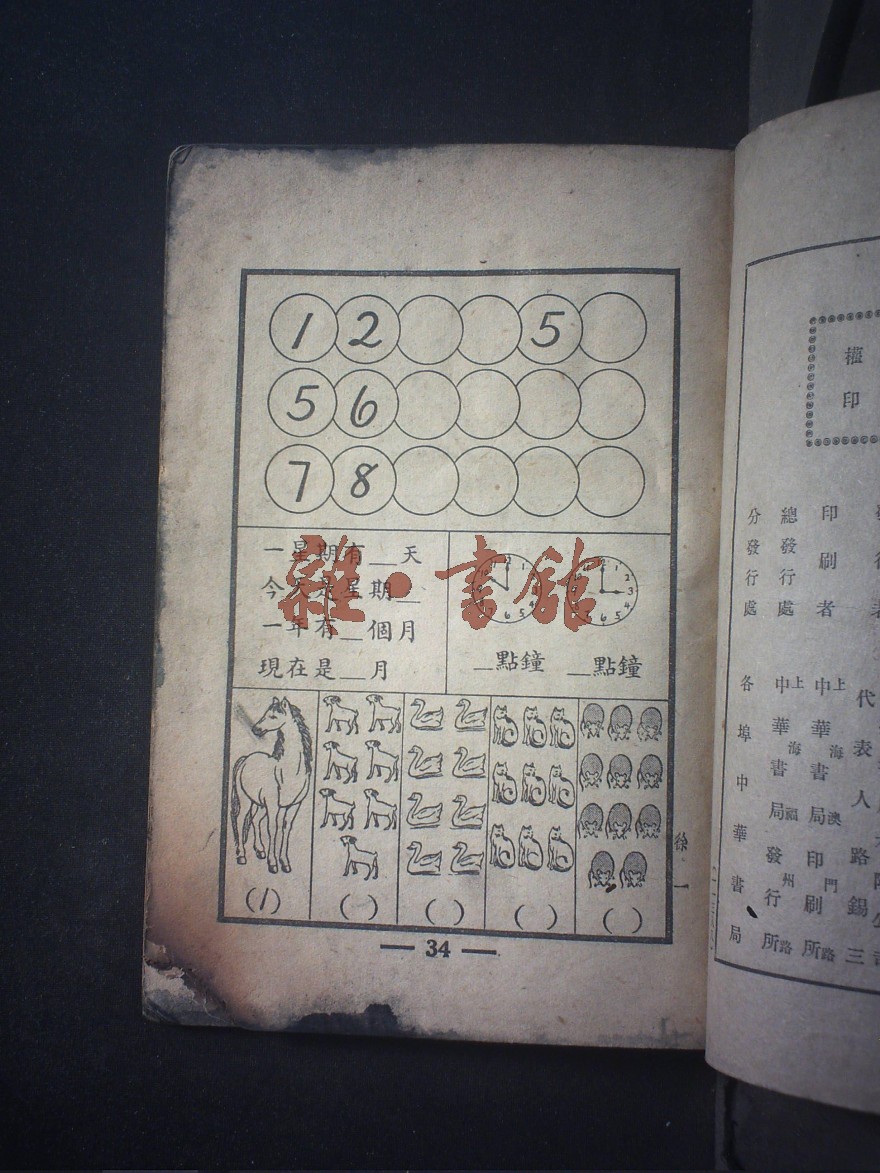 1 2 5
5 6
7 8
一星期有__天
今天是星期__
一年有__個月
現在是__月
__點鐘 __點鐘
(1) ( ) ( ) ( ) ( )
— 34 —
雜·書館
印
印刷者
總發行處
分發行處
代表人路錫三
上海澳門路
中華書局印刷所
上海福州路
中華書局發行所
各埠中華書局